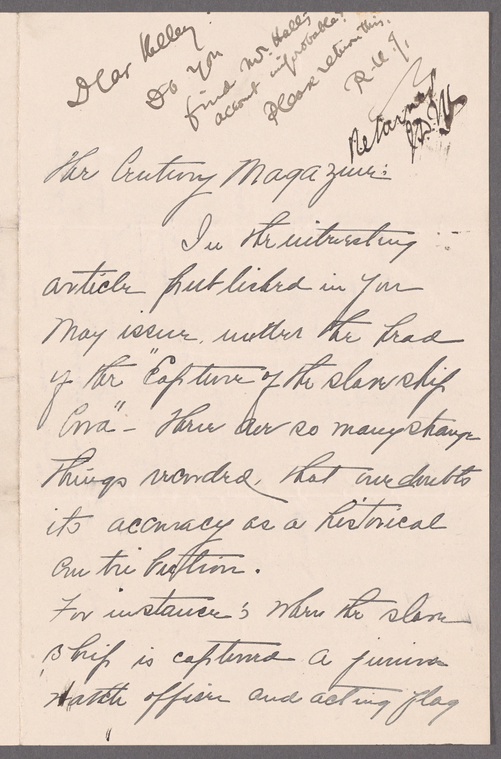 Dear Kelley:
Do you
find Mr. Hall's
account improbable?
Please return this.
R. U. J.
Returned
The Century Magazine:
In the interesting
article published in your
May issue, under the head
of the "Capture of the slave ship
Cora" - there are so many strange
things recorded, that one doubts
its accuracy as a historical
contribution.
For instance: When the slave
ship is captured a junior
watch officer and acting flag